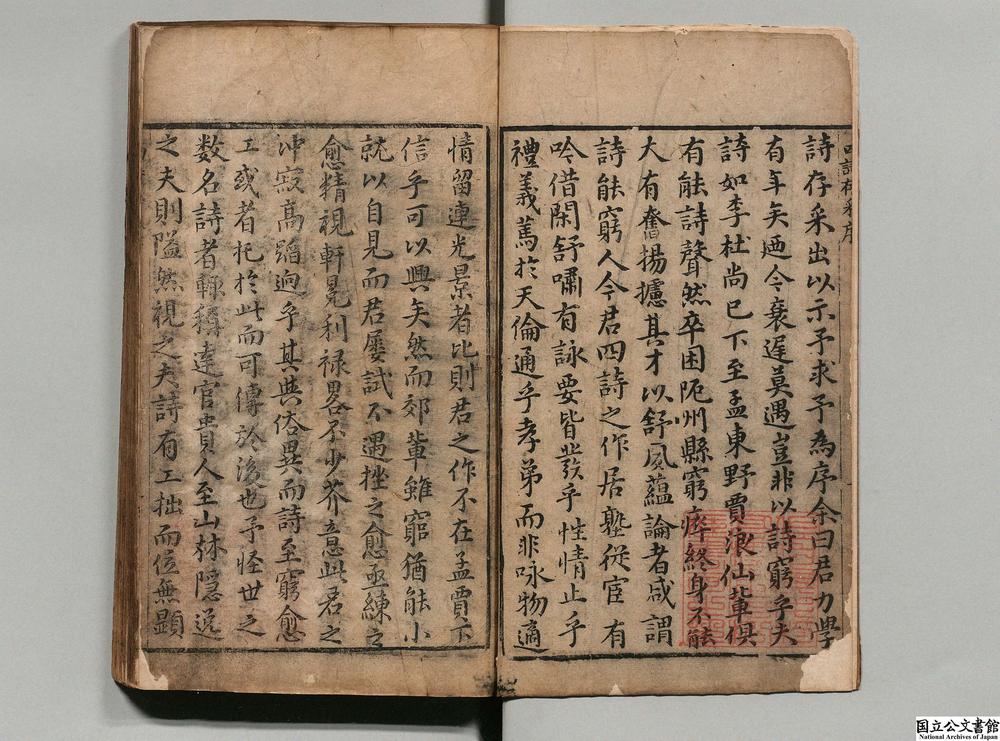 詩存采出以示予求予為序余曰君力學
有年矣廼今衰遲莫遇豈非以詩窮乎夫
詩如李杜尚已下至孟東野賈浪仙輩俱
有能詩聲然卒困阨州縣窮瘁終身不能
大有奮揚攄其才以舒風蘊論者咸謂
詩能窮人今君四詩之作居塾從宦有
吟借閑舒嘯有詠要皆發乎性情止乎
禮義篤於天倫通乎孝弟而非咏物適
情留連光景者比則君之作不在孟賈下
信乎可以興矣然而郊輩雖窮猶能小
就以自見而君屢試不遇挫之愈亟練之
愈精視軒冕利祿畧不少芥意此君之
冲寂高蹈迥乎其與俗異而詩至窮愈
工或者托於此而可傳於後也予怪世之
数名詩者輙稱達官貴人至山林隱逸
之夫則隘然視之夫詩有工拙而位無顯
国立公文書館
National Archives of Japan